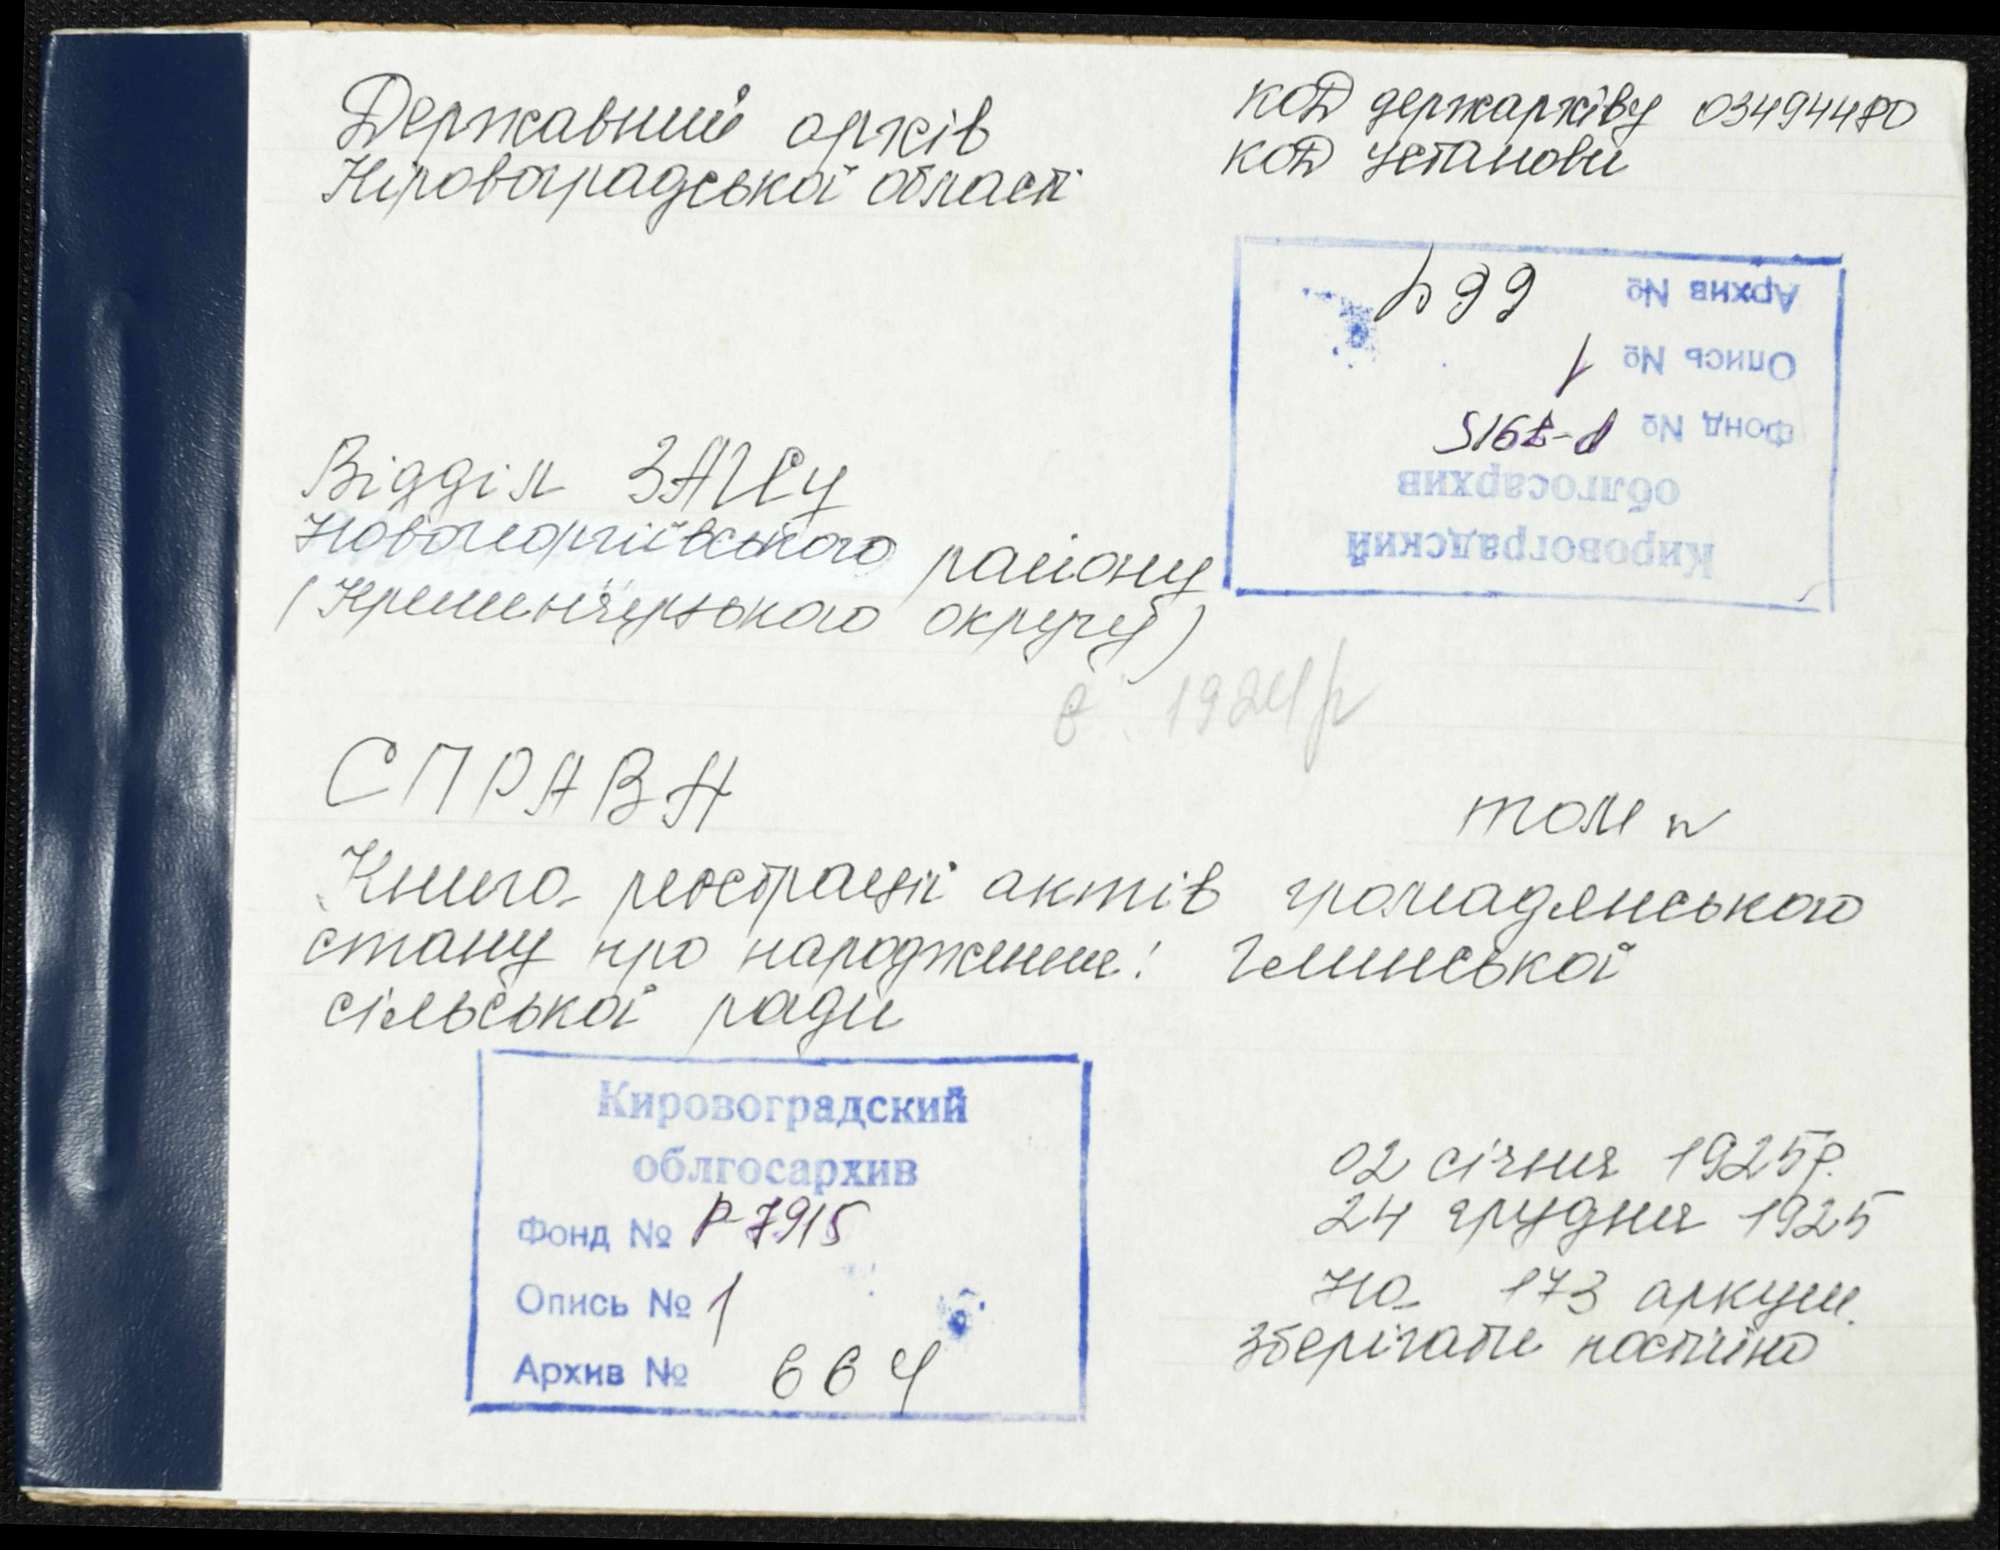 Державний архів
Кіровоградської області
код держархіву 03494480
код установи
Архив № 664
Опись № 1
Фонд № Р-7915
облгосархив
Кировоградский
Відділ ЗАГСу
Новогеоргіївського району
(Кременчуцького округу)
є 1924р
СПРАВА
том №
Книга реєстрації актів громадянського
стану про народження: Глинської
сільської ради
Кировоградский
облгосархив
Фонд № Р-7915
Опись № 1
Архив № 664
02 січня 1925р.
24 грудня 1925
На 173 аркуш.
Зберігати постійно